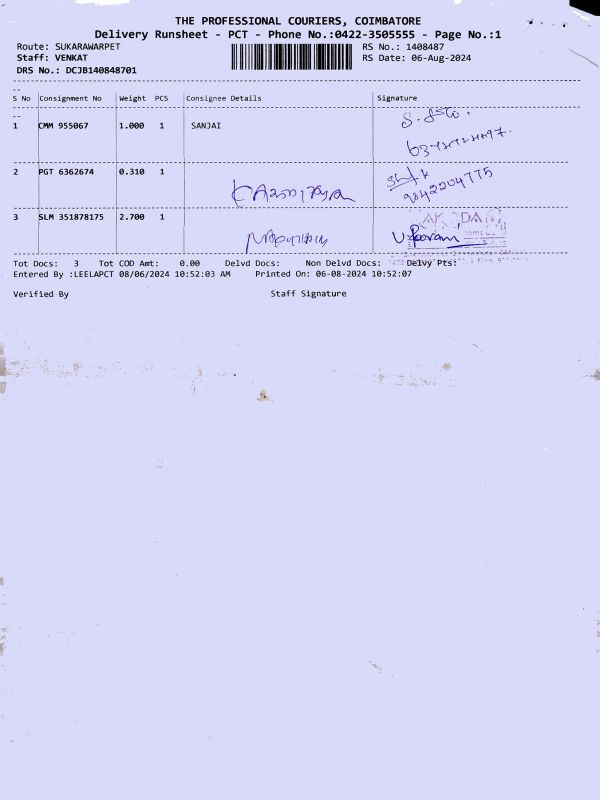 THE PROFESSIONAL COURIERS, COIMBATORE
Delivery Runsheet - PCT - Phone No.:0422-3505555 - Page No.:1
Route: SUKARAWARPET RS No.: 1408487
Staff: VENKAT RS Date: 06-Aug-2024
DRS No.: DCJB140848701
S No Consignment No Weight PCS Consignee Details Signature
1 CMM 955067 1.000 1 SANJAI
2 PGT 6362674 0.310 1
9842204775
3 SLM 351878175 2.700 1
Tot Docs: 3 Tot COD Amt: 0.00 Delvd Docs: Non Delvd Docs: Delvy Pts:
Entered By :LEELAPCT 08/06/2024 10:52:03 AM Printed On: 06-08-2024 10:52:07
Verified By Staff Signature